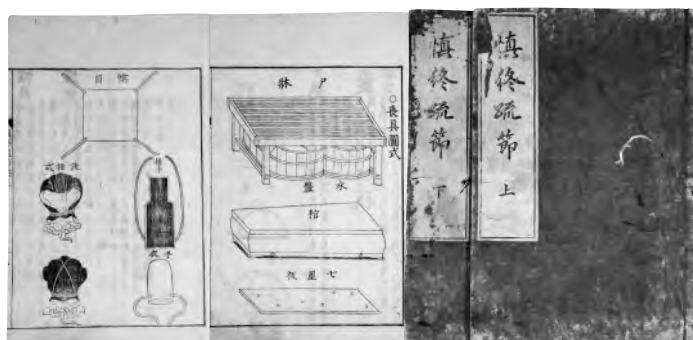 慎終疏節 上
慎終疏節 下
○喪具圖式
尸牀
水盤
棺
七星板
幎目